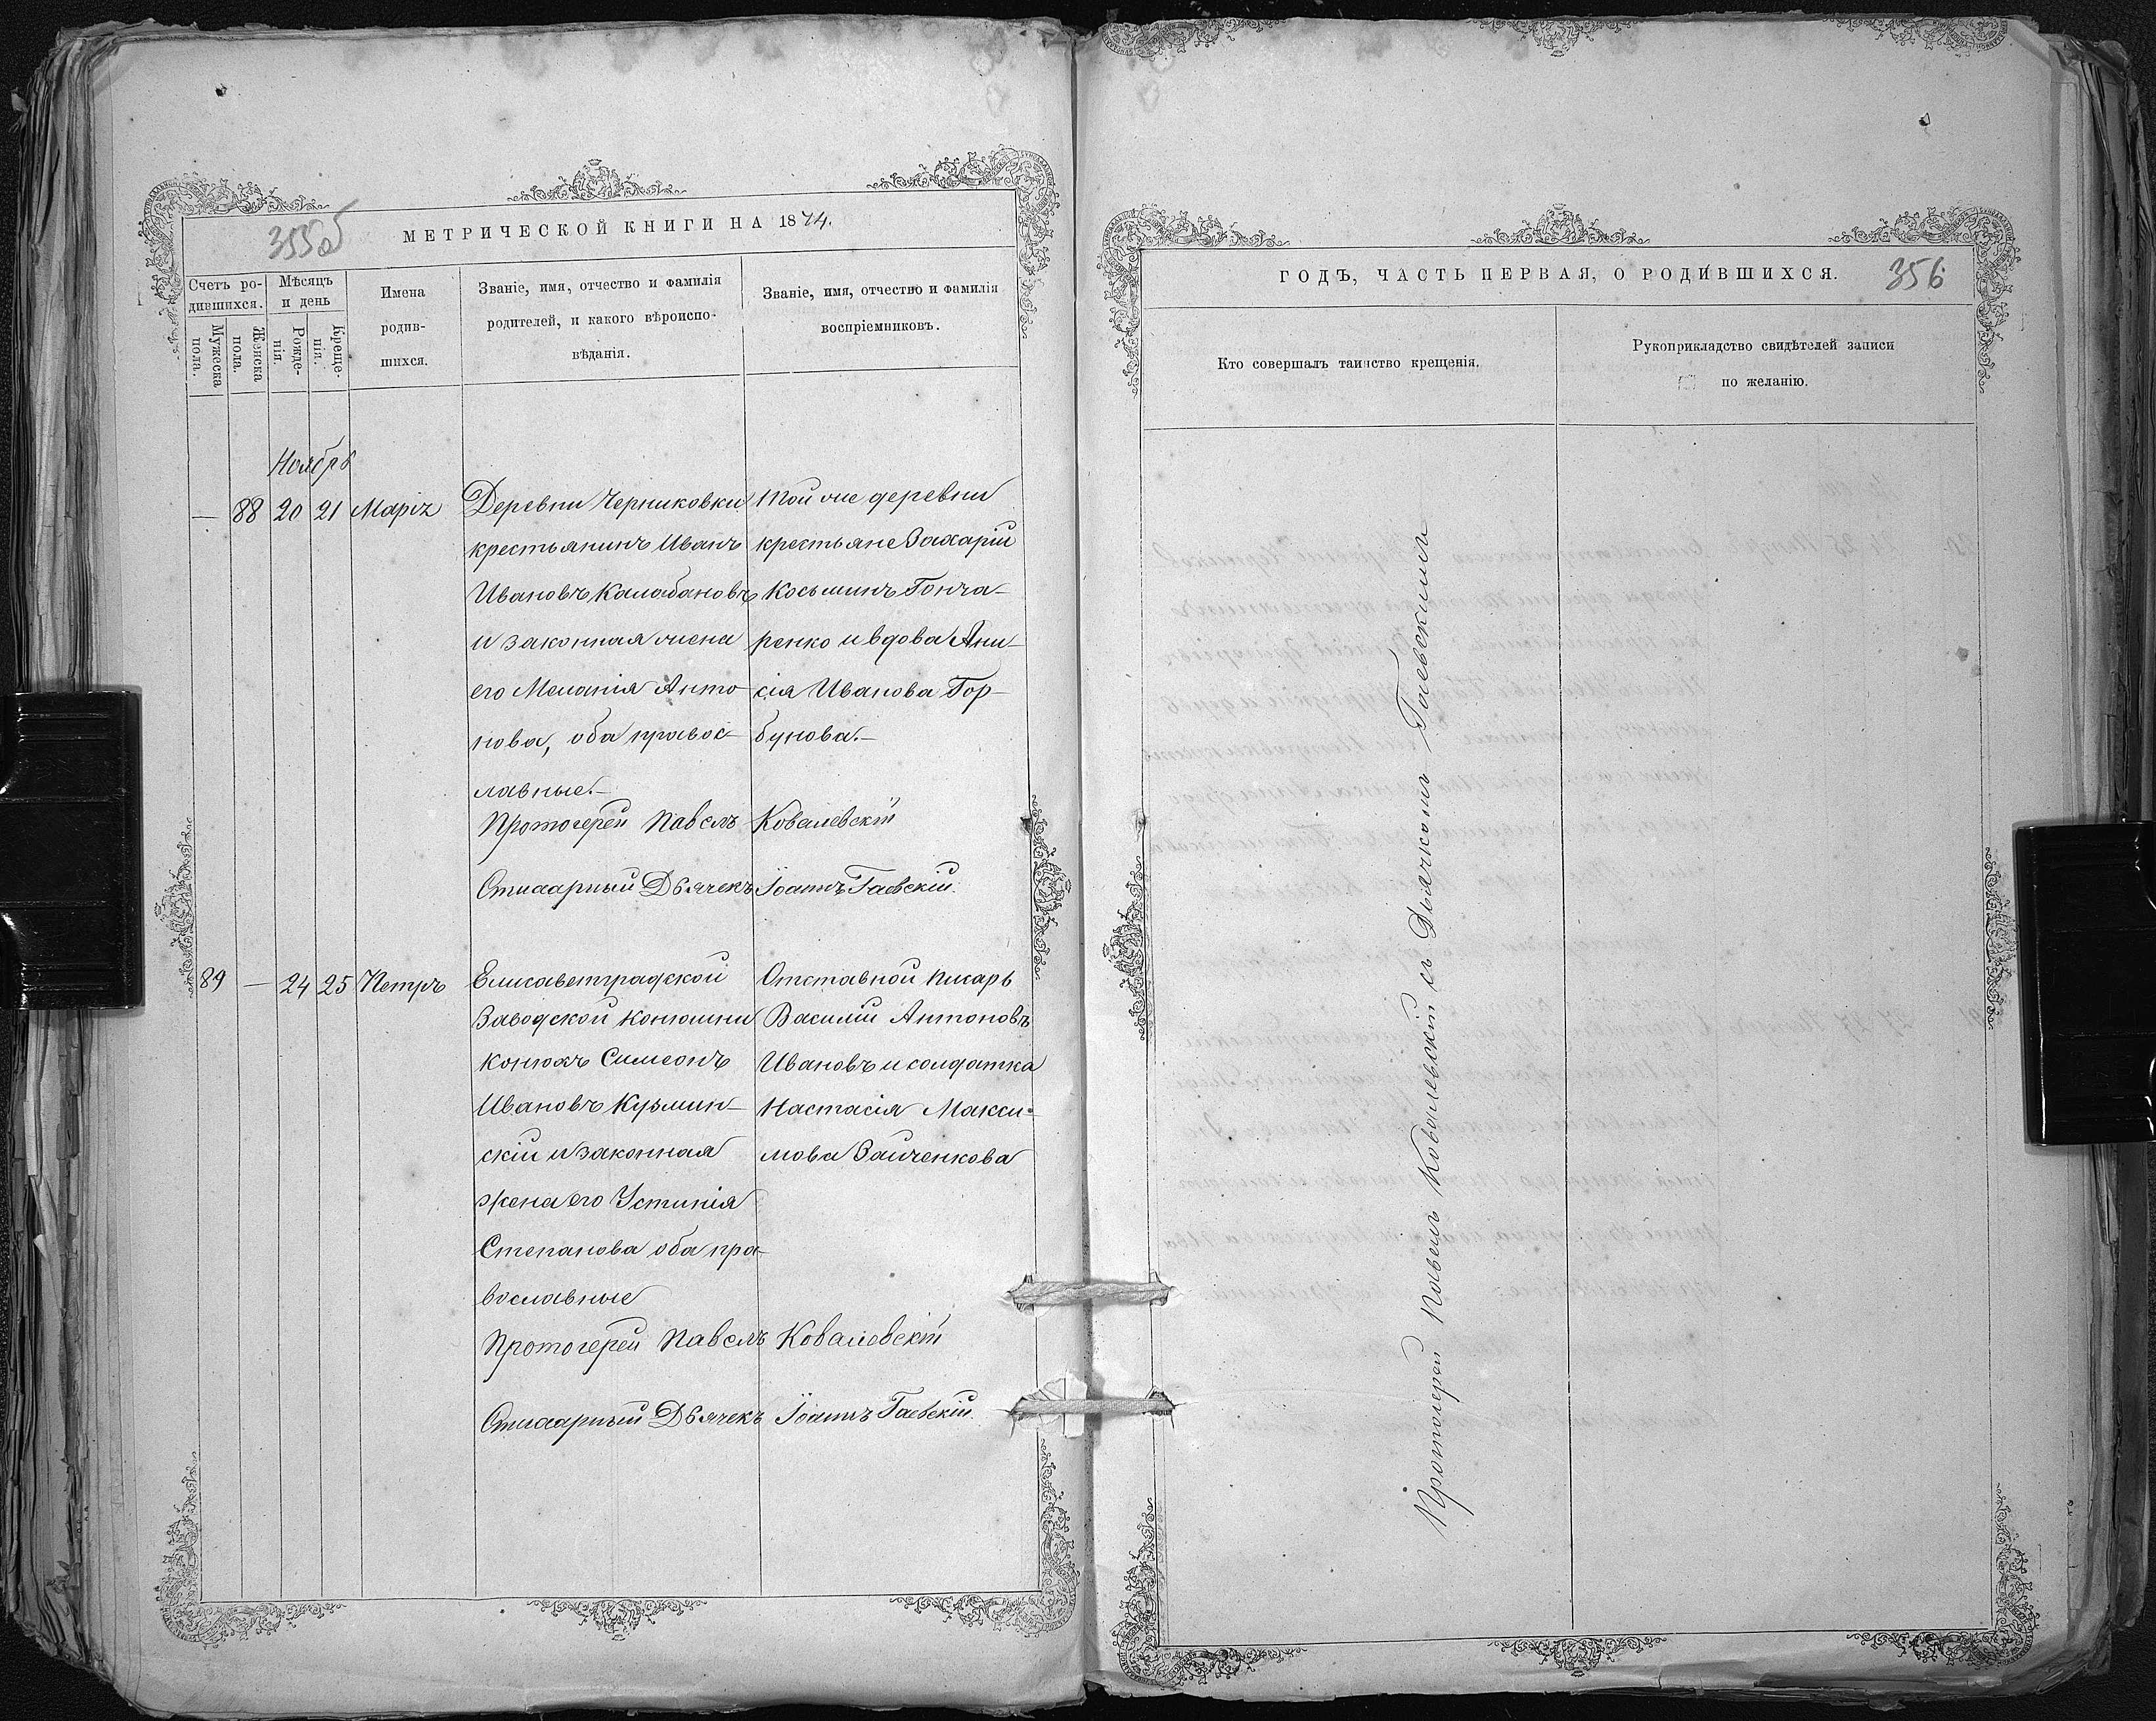 355об
МЕТРИЧЕСКОЙ КНИГИ НА 1874.
Счетъ ро-
дившихся.
Мужеска
пола.
Женска
пола.
Мѣсяцъ
и день
Рожде-
нія.
Креще-
нія.
Имена
родив-
шихся.
Званіе, имя, отчество и фамилія
родителей, и какого вѣроиспо-
вѣданія.
Званіе, имя, отчество и фамилія
воспріемниковъ.
Ноябрь
— 88 20 21 Марія
Деревни Черниковки
крестьянинъ Иванъ
Ивановъ Калабановъ
и законная жена
его Меланія Анто-
нова, оба правос-
лавные.—
Той же деревни
крестьяне Захарій
Косьминъ Гонча-
ренко и вдова Ани-
сія Иванова Гор-
бунова.—
Протоіерей Павелъ Ковалевскій
Стихарный Дьячекъ Іоаннъ Гаевскій.
89 — 24 25 Петръ
Елисаветградской
Заводской конюшни
конюхъ Симеонъ
Ивановъ Кузмин-
скій и законная
жена его Устинія
Степанова оба пра-
вославные
Отставной писарь
Василій Антоновъ
Ивановъ и солдатка
Настасія Макси-
мова Зайченкова
Протоіерей Павелъ Ковалевскій
Стихарный Дьячекъ Іоаннъ Гаевскій.
ГОДЪ, ЧАСТЬ ПЕРВАЯ, О РОДИВШИХСЯ.
356
Кто совершалъ таинство крещенія.
Рукоприкладство свидѣтелей записи
по желанію.
Протоіерей Павелъ Ковалевскій съ Дьячкомъ Гаевскимъ